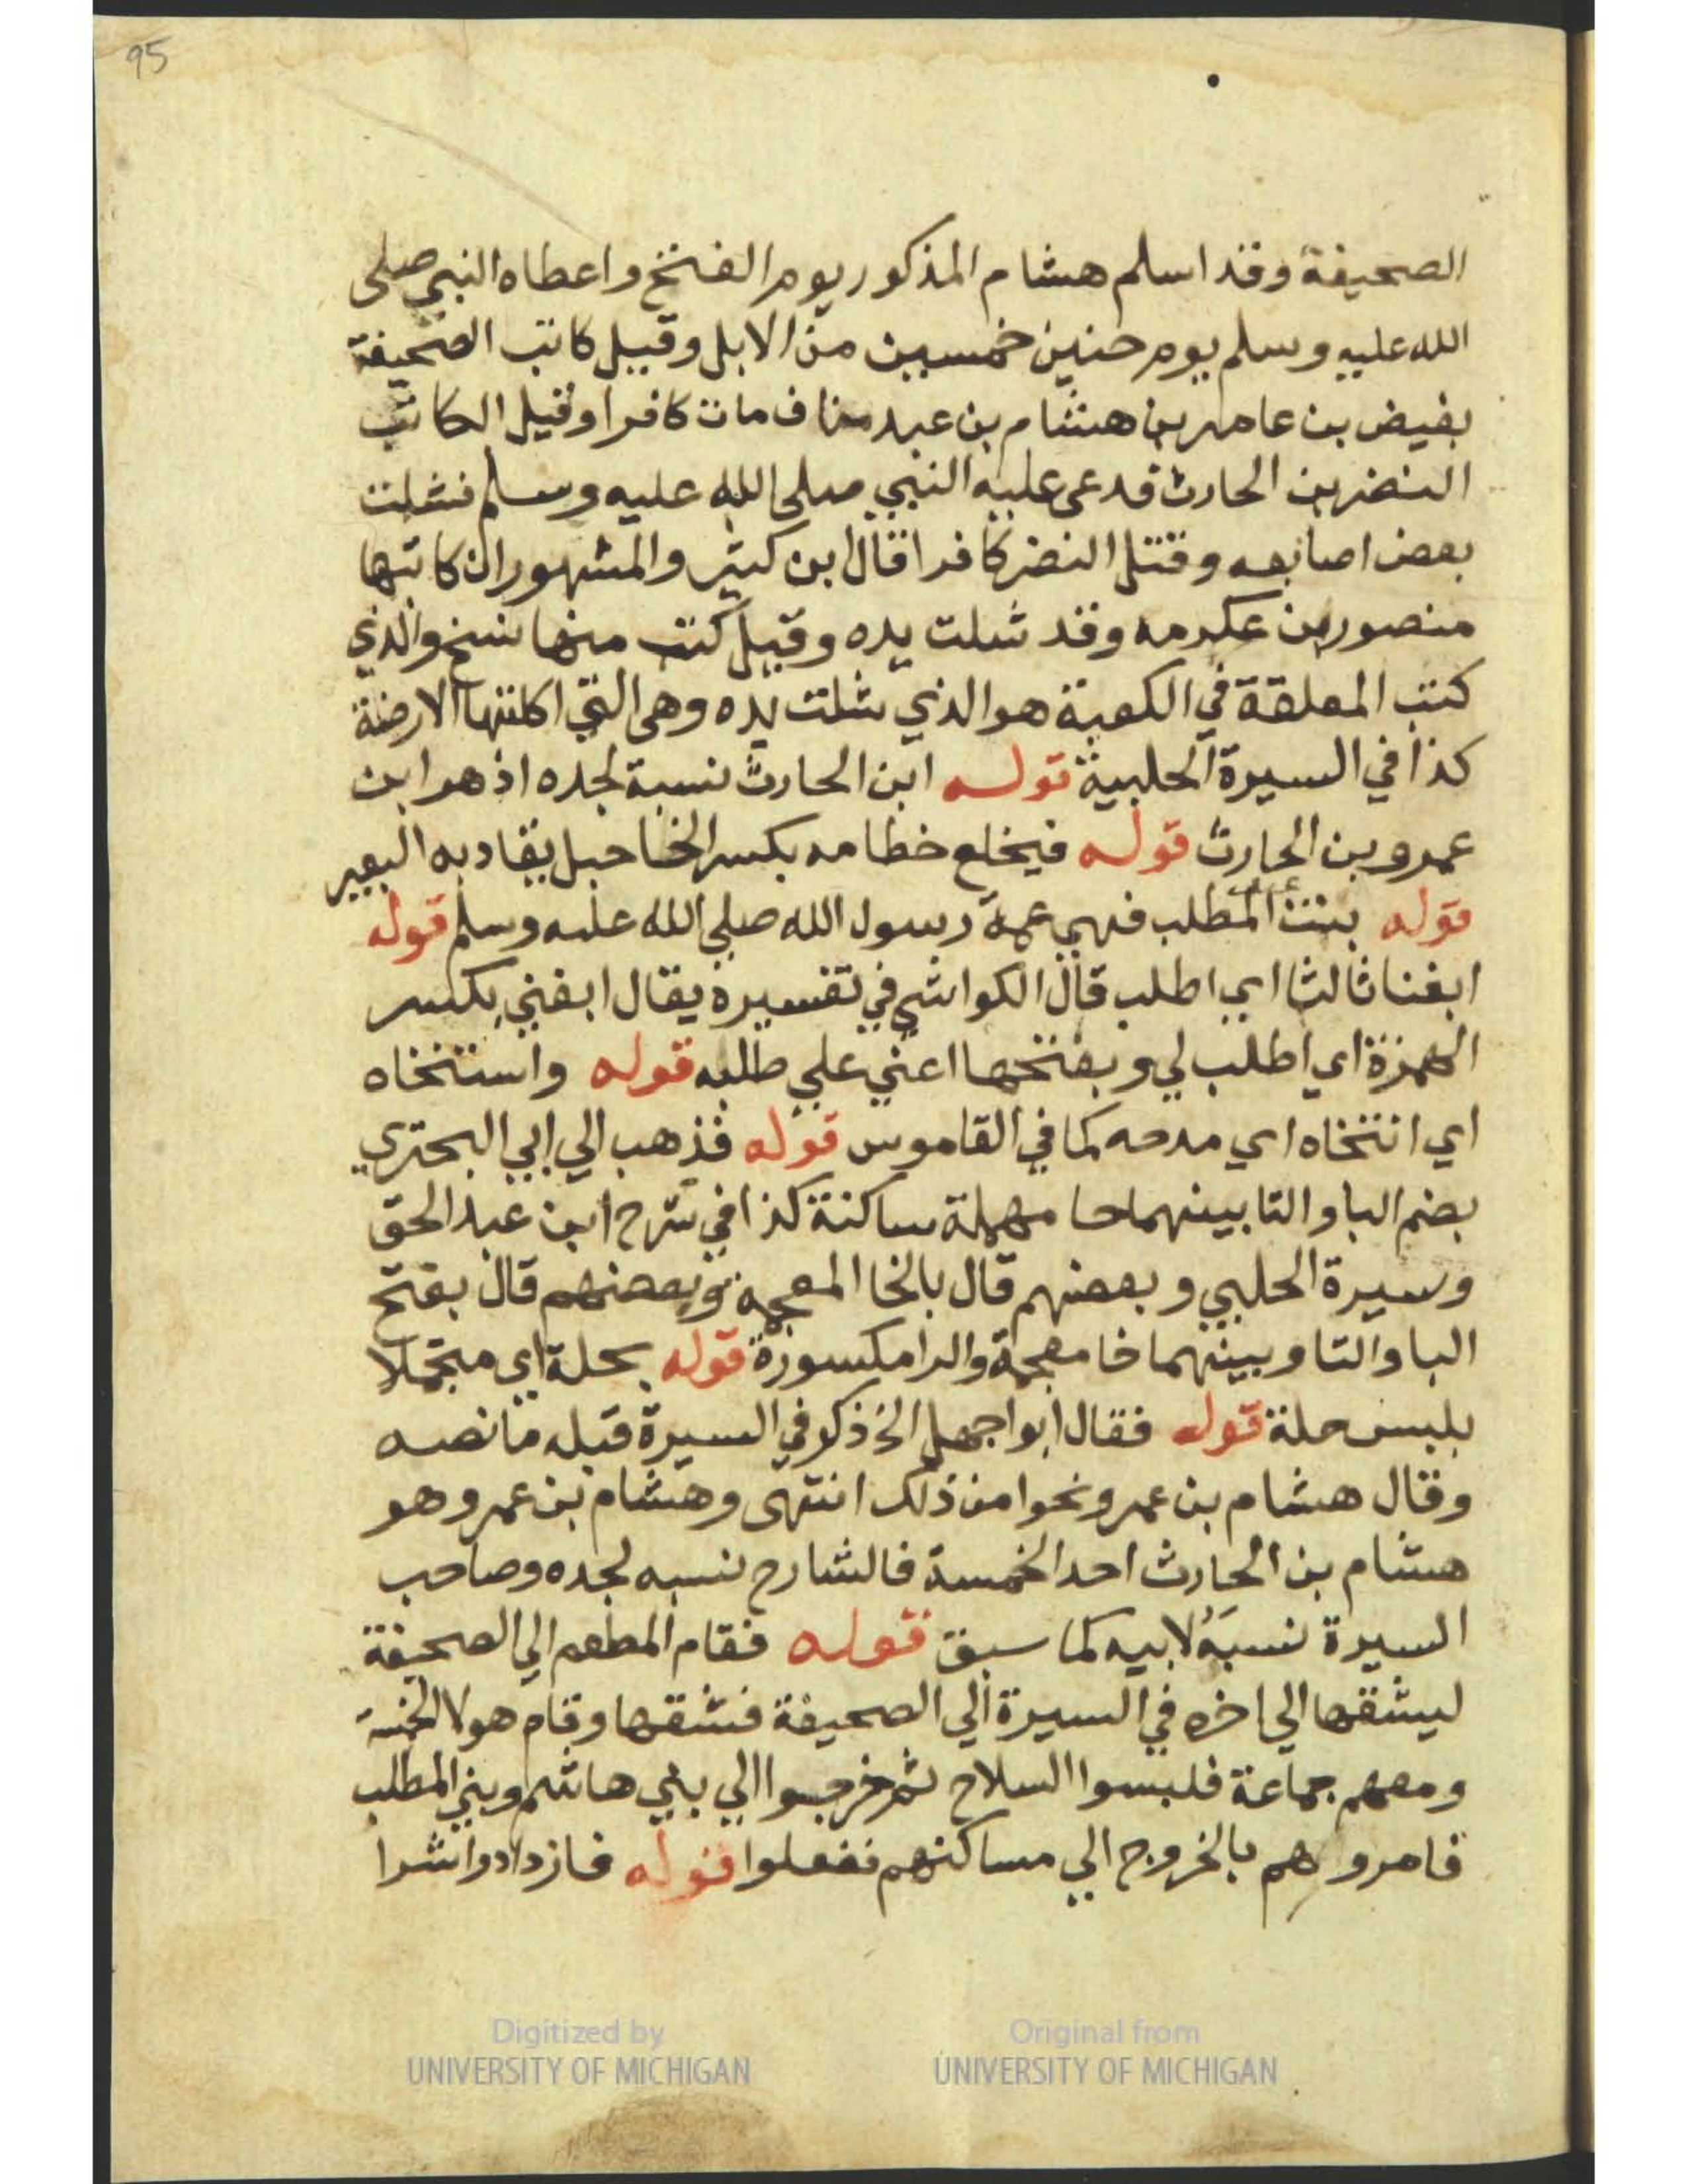 95
الصحيفة وقد اسلم هشام المذكور يوم الفتح واعطاه النبي صلى
الله عليه وسلم يوم حنين خمسين من الابل وقيل كاتب الصحيفة
بغيض بن عامر بن هشام بن عبد مناف مات كافرا وقيل الكاتب
النضر بن الحارث قدعى عليه النبي صلى الله عليه وسلم فشلت
بعض اصابعه وقتل النضر كافرا قال ابن كثير والمشهور ان كاتبها
منصور بن عكرمه وقد شلت يده وقيل كتب منها نسخ والذي
كتب المعلقة في الكعبة هو الذي شلت يده وهى التي اكلتها الارضة
كذا في السيرة الحلبية قوله ابن الحارث نسبة لجده اذ هو ابن
عمرو بن الحارث قوله فيخلع خطامه بكسر الخا حبل يقاد به البعير
قوله بنت المطلب فهي عمة رسول الله صلي الله عليه وسلم قوله
ابغنا ثالثا اي اطلب قال الكواشي في تفسيره يقال ابغني بكسر
الهمزة اي اطلب لي وبفتحها اعني علي طلبه قوله واستنخاه
اي انتخاه اي مدحه كما في القاموس قوله فذهب الي ابي البحتري
بضم البا والتا بينهما حا مهملة ساكنة كذا في شرح ابن عبد الحق
وسيرة الحلبي وبعضهم قال بالخا المعجمة وبعضهم قال بفتح
البا والتا وبينهما خا معجمة والرا مكسورة قوله بحلة اي متجملا
بلبس حلة قوله فقال ابوا جهل الخ ذكر في السيرة قبله ما نصه
وقال هشام بن عمرو نحوا من ذلك انتهى وهشام بن عمرو هو
هشام بن الحارث احد الخمسة فالشارح نسبه لجده وصاحب
السيرة نسبَهُ لابيه كما سبق قوله فقام المطعم الي الصحيفة
ليشقها الي اخره في السيرة الي الصحيفة فشقها وقام هولا الخمسة
ومعهم جماعة فلبسوا السلاح ثم خرجوا الي بني هاشم وبني المطلب
فامروهم بالخروج الي مساكنهم ففعلوا قوله فازدادوا شرا
Digitized by
UNIVERSITY OF MICHIGAN
Original from
UNIVERSITY OF MICHIGAN